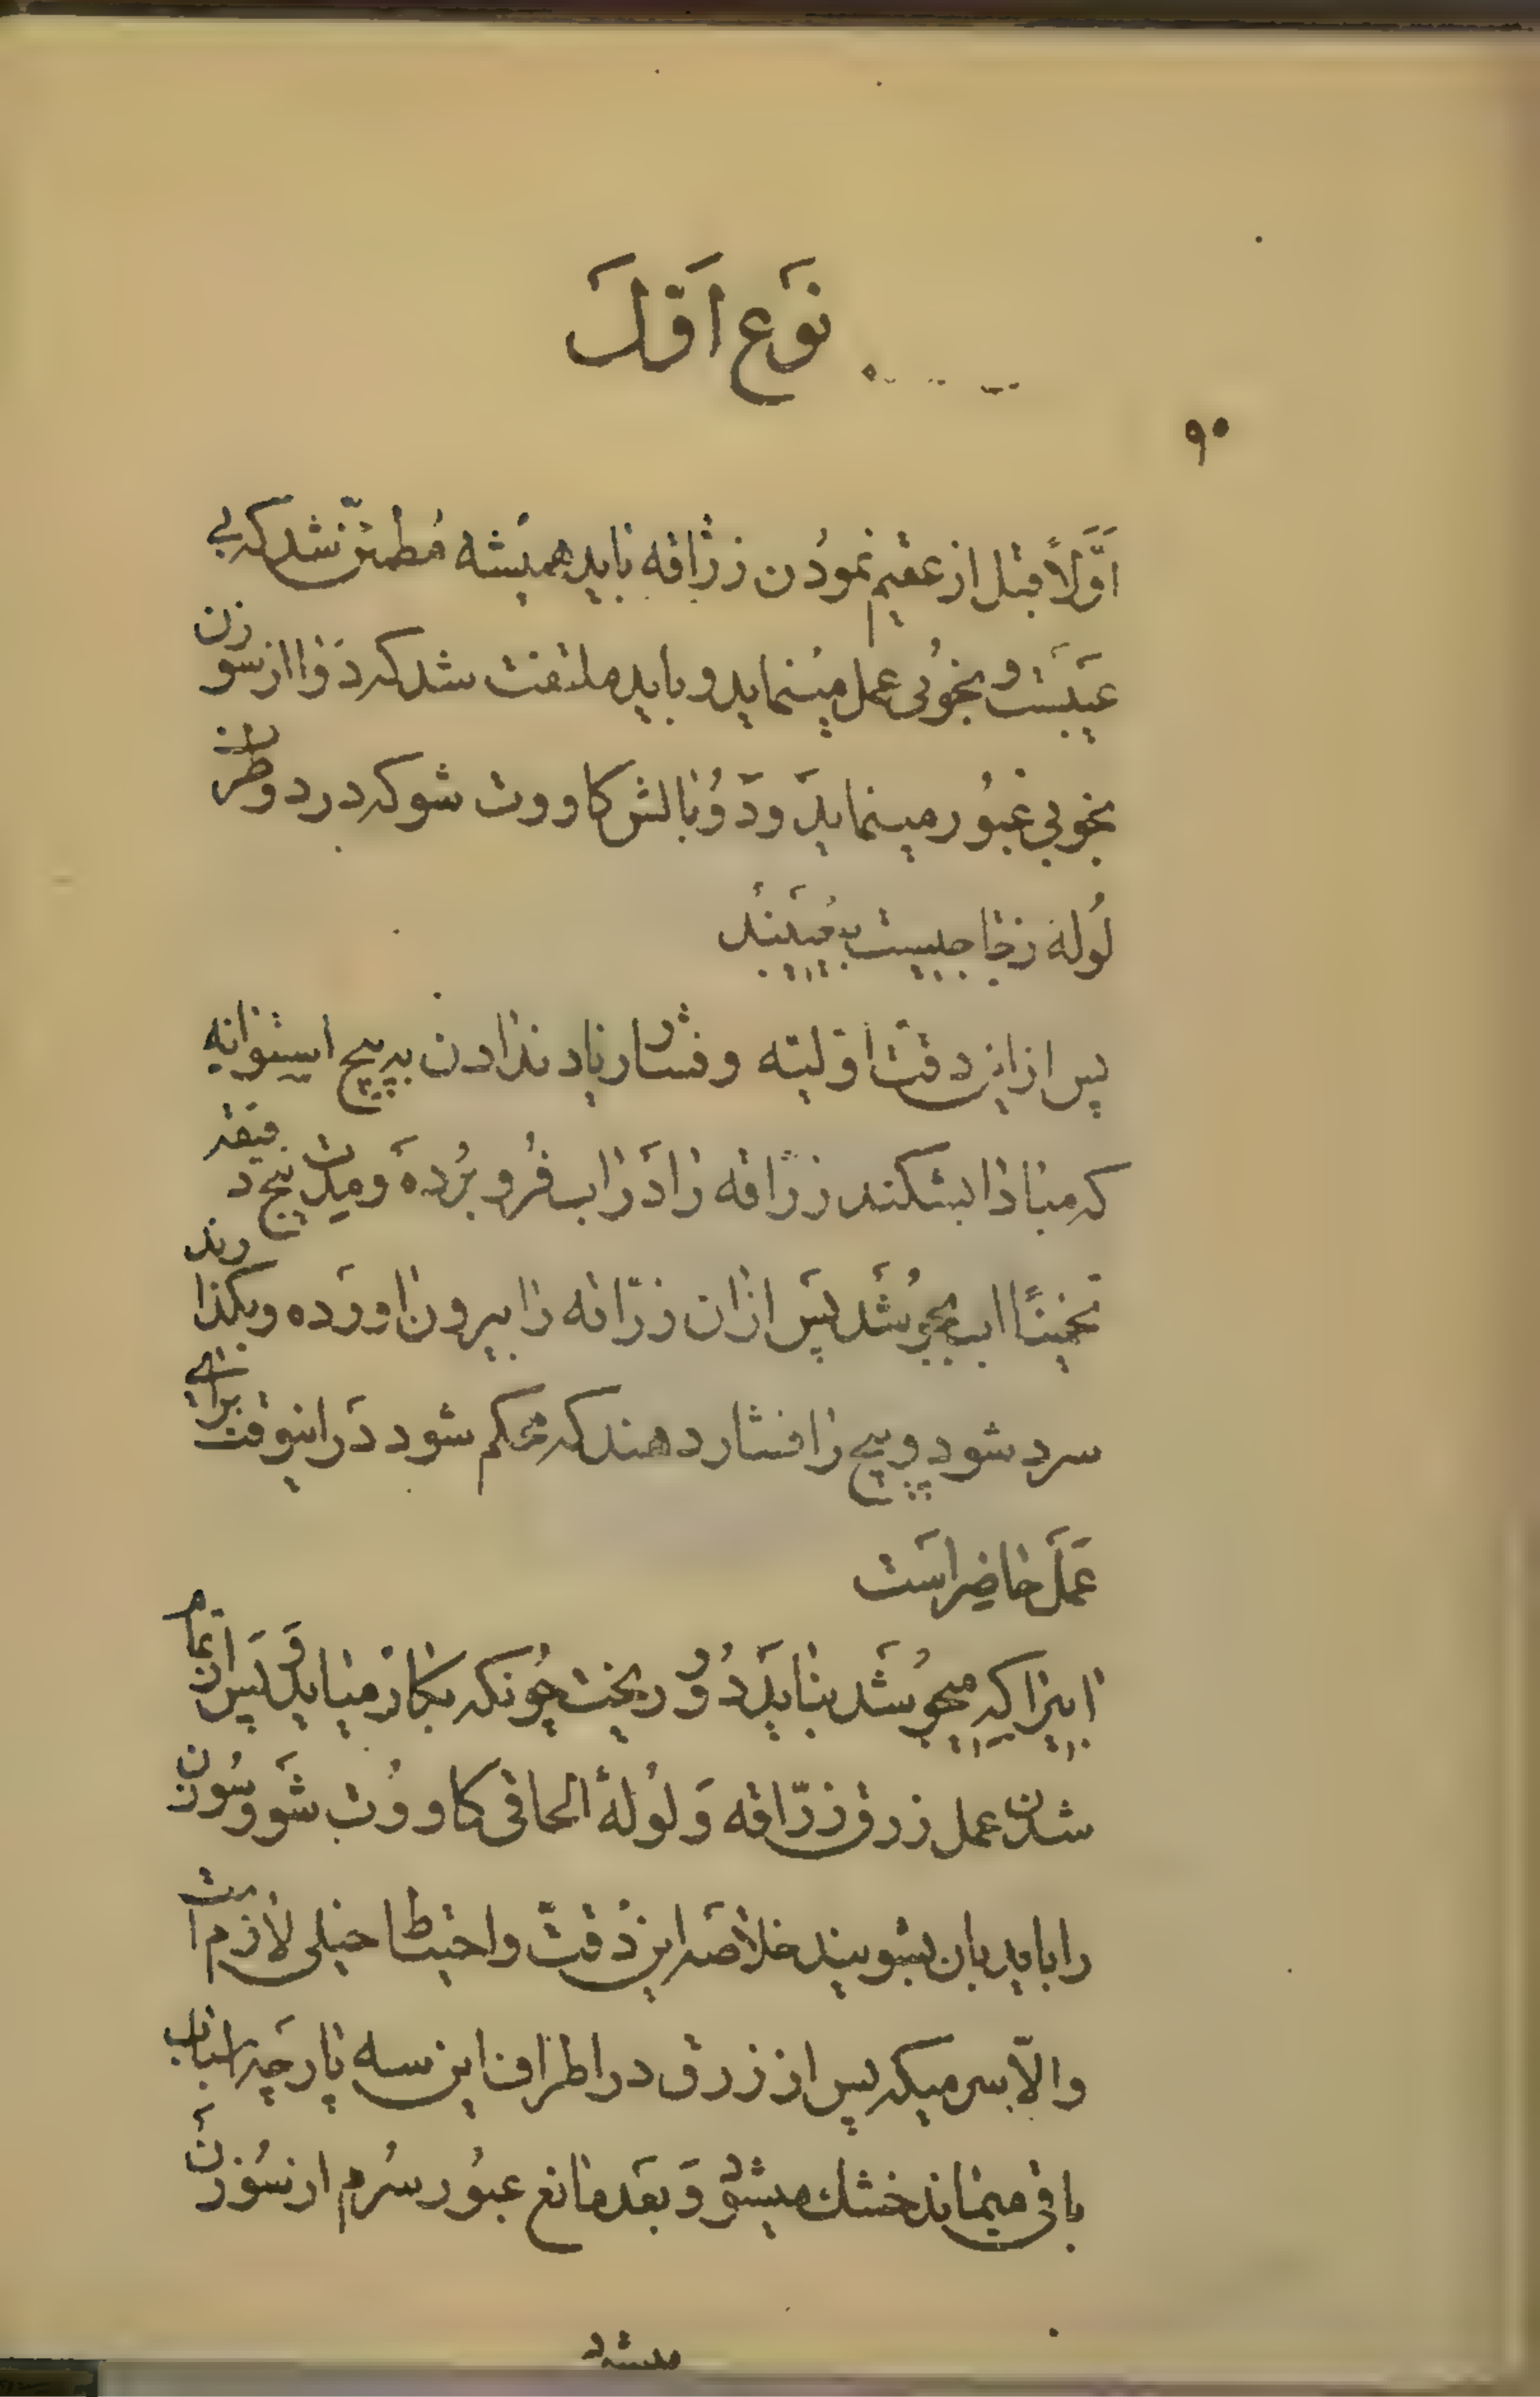 نوع اوّل
۹۰
اوّلاً قبل از عقیم نمودن زرّاقه باید همیشه مطمئنّ شد که بی
عیبست و بخوبی عمل مینماید و باید ملتفت شد که دوا از سوزن
بخوبی عبور مینماید و دونبالش کاووت شو که در دو طرف
لوله زجاجیست به بینید
پس از این دقت اوّلیّه و فشار زیاد ندادن به پیچ استوانه
که مبادا بشکند زرّاقه را در اب فرو برده و مدت پنج دقیقه
تخمیناً اب بجوشد پس از ان زرّاقه را بیرون اورده و بگذارند
سرد شود و پیچ را فشار دهند که محکم شود در اینوقت برای
عمل حاضر است
ابیرا که میجوشد نباید دور ریخت چونکه بکار میاید و پس از تمام
شدن عمل زرق زرّاقه و لولهٔ الحاقی کاووت شو و سوزن
را باید بان بشویند خلاصه این دقت و احتیاط خیلی لازم است
والّا سرمیکه پس از زرق در اطراف این سه پارچه اسباب
باقی میماند خشک میشود و بعد مانع عبور سرم از سوزن
میشود